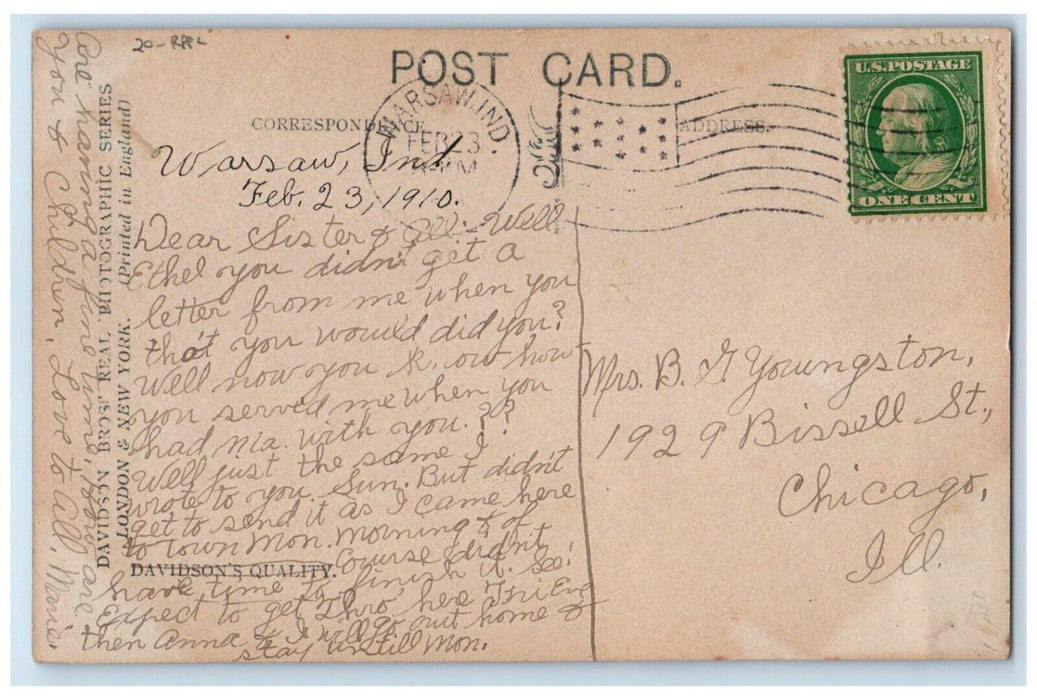 20-RPPC
POST CARD.
CORRESPONDENCE
ADDRESS.
WARSAW, IND.
FEB 23
PM
U.S. POSTAGE
ONE CENT
Warsaw, Ind.
Feb. 23, 1910.
Dear Sister & All:- Well
Ethel you didn't get a
letter from me when you
that you would did you?
Well now you k.ow how
you served me when you
had Ma. with you. ??
Well just the same I
wrote to you Sun. But didn't
get to send it as I came here
to town Mon. morning & of
course didn't
have time to finish it. See!
Expect to get Thro' here Fri Eve
then Anna & I will go out home &
stay untill Mon.
are having a fine time, How are
you & Children, Love to all. Marie.
DAVIDSON BROS' REAL PHOTOGRAPHIC SERIES
LONDON & NEW YORK. (Printed in England)
DAVIDSON'S QUALITY.
Mrs. B. G. Youngston,
1929 Bissell St.,
Chicago,
Ill.